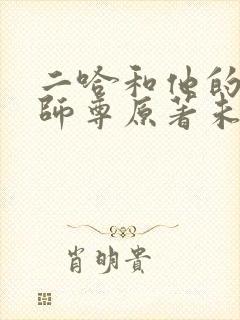 二哈和他的
師尊原著未
肖明貴